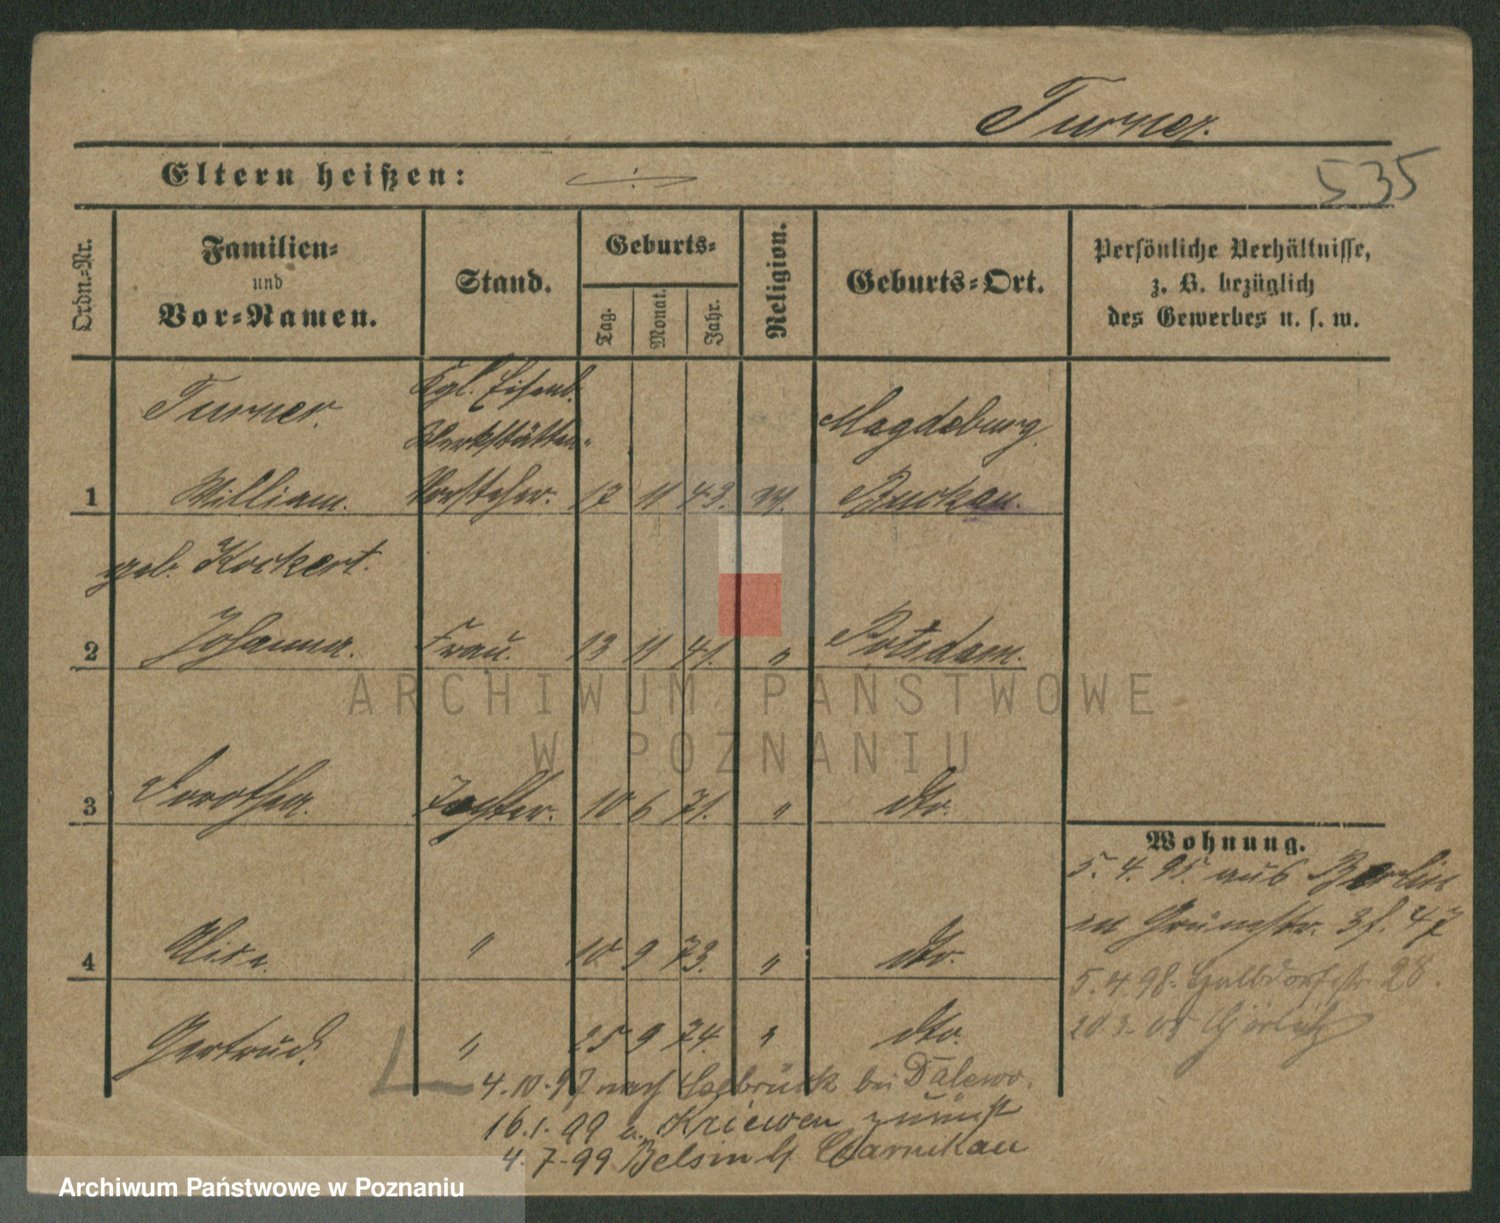 Turner.
Eltern heißen:
535
Ordn.-Nr.
Familien-
und
Vor-Namen.
Stand.
Geburts-
Tag.
Monat.
Jahr.
Religion.
Geburts-Ort.
Persönliche Verhältnisse,
z. B. bezüglich
des Gewerbes u. s. w.
Turner.
Kgl. Eisenb.
Werkstätten-
Magdeburg.
1 William. Vorsteher. 12 11 43. Buckau.
geb. Kockert.
2 Johanna. Frau. 13 11 41. " Potsdam.
3 Dorothea. Tochter. 10 6 71. " dto.
Wohnung.
5. 4. 95. aus Berlin
in Grünestr. 3 f. 47
4 " 10. 9 73. " dto.
5. 4. 98. Halbdorfstr. 28.
Gertrud. " 25 9 74. " dto.
Görlitz
4. 10. 97 nach bei Dalewo.
16. 1. 99 a. Kriewen
4. 7. 99 Belsin b/ Czarnikau
ARCHIWUM PAŃSTWOWE
W POZNANIU
Archiwum Państwowe w Poznaniu